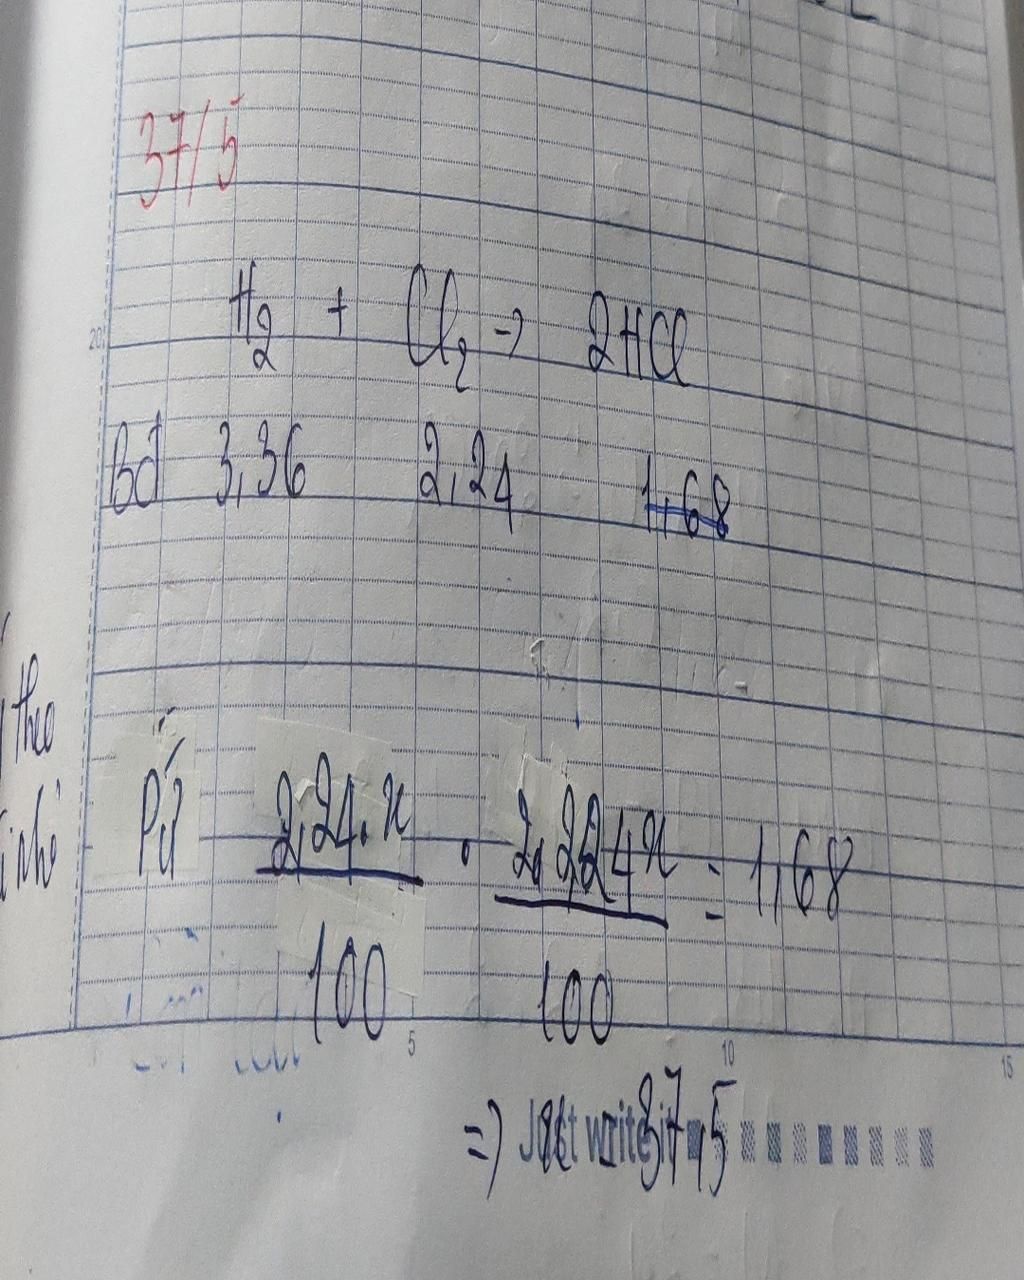 37/5
H₂ + Cl₂ → 2HCl
20
Bđ 3,36 2,24 1,68
theo
nhỏ
Pứ 2,24.x / 100 . 2.2,24x / 100 = 1,68
5 10 15
=) x = 37,5
Just write it